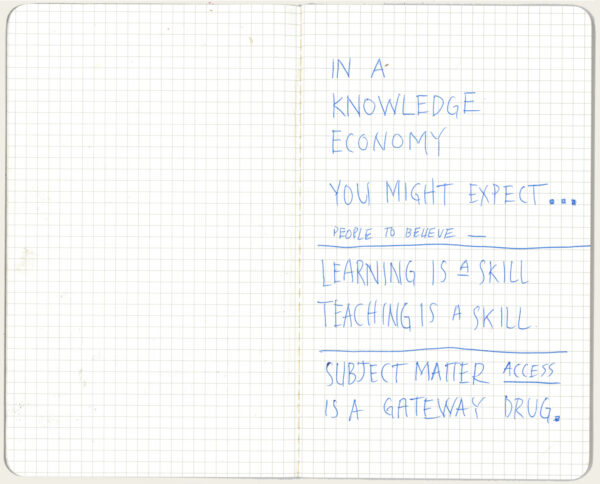 IN A
KNOWLEDGE
ECONOMY
YOU MIGHT EXPECT...
PEOPLE TO BELIEVE —
LEARNING IS A SKILL
TEACHING IS A SKILL
SUBJECT MATTER ACCESS
IS A GATEWAY DRUG.